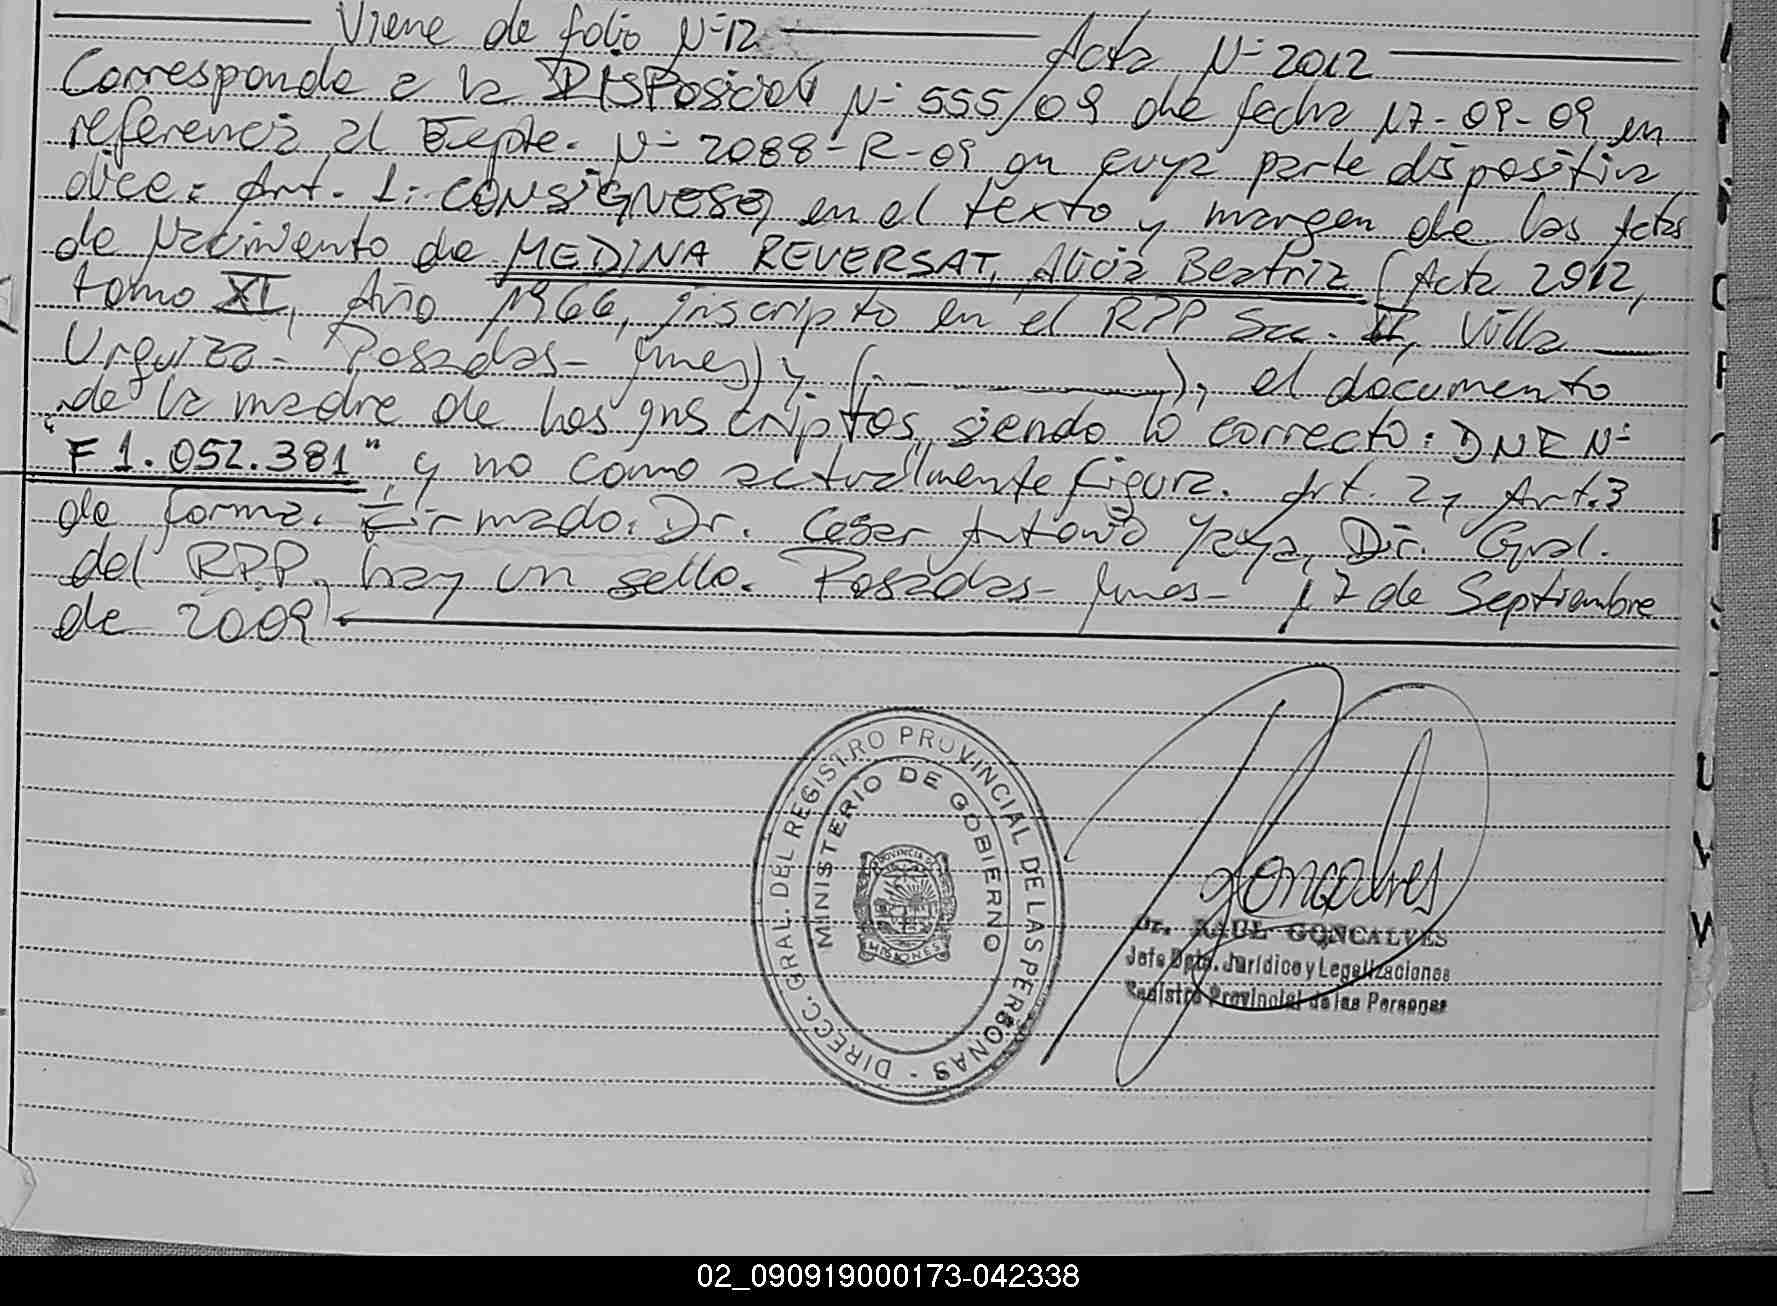 Viene de folio Nº 12
Acta Nº 2012
Corresponde a la DISPosicióN Nº 555/09 de fecha 17-09-09 en
referencia al Expte. Nº 2088-R-09 en cuya parte dispositiva
dice: Art. 1: CONSIGNESE, en el texto y margen de las Actas
de Nacimiento de MEDINA REVERSAT, Alicia Beatriz (Acta 2012,
tomo XI, Año 1966, inscripto en el RPP Sec. II, Villa
Urquiza - Posadas - Mnes) y ( ), el documento
de la madre de los inscriptos, siendo lo correcto: DNE Nº
"F 1.052.381" y no como actualmente figura. Art. 2 y Art. 3
de forma. Firmado: Dr. Cesar Antonio Yaya, Dir. Gral.
del RPP, hay un sello. Posadas - Mnes - 17 de Septiembre
de 2009
DIRECC. GRAL. DEL REGISTRO PROVINCIAL DE LAS PERSONAS -
MINISTERIO DE GOBIERNO
PROVINCIA DE
MISIONES
Goncalves
Dr. RAUL GONCALVES
Jefe Dpto. Jurídico y Legalizaciones
Registro Provincial de las Personas
02_090919000173-042338